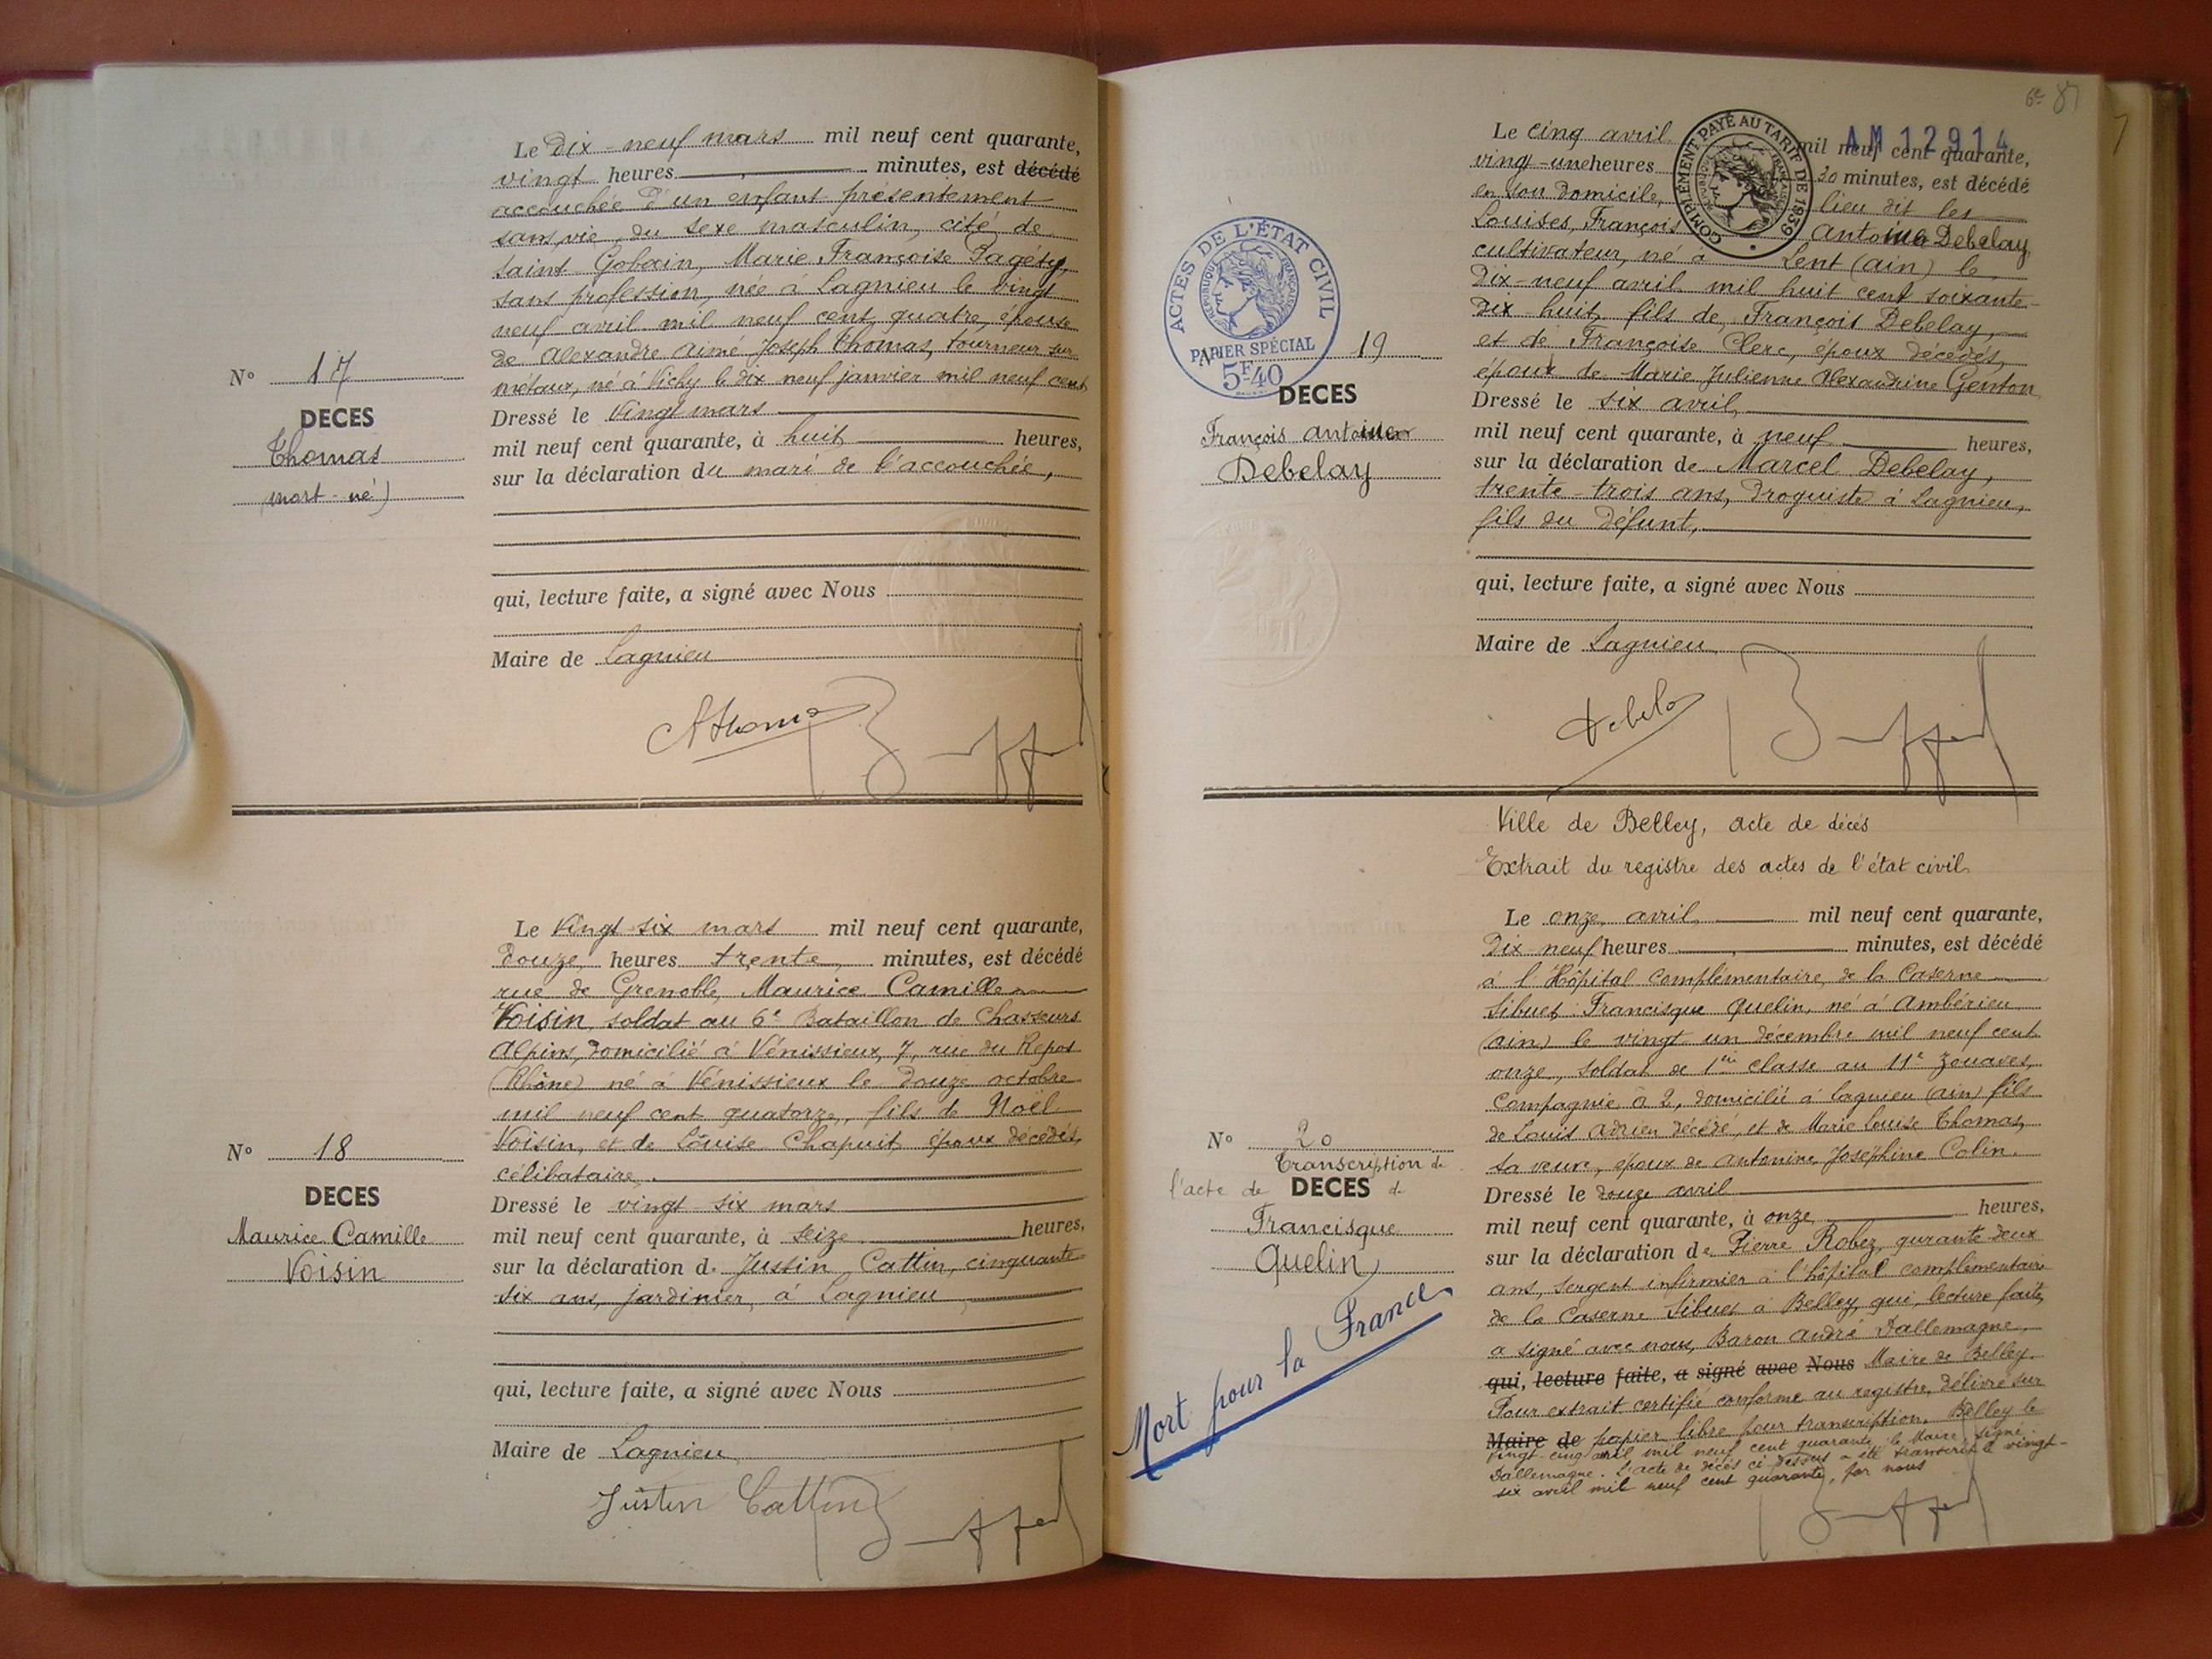 Le Dix-neuf mars mil neuf cent quarante,
vingt heures minutes, est décédé
accouchée d'un enfant présentement
sans vie, du sexe masculin, cité de
Saint Gobain, Marie Françoise Pagéty,
sans profession, née à Lagnieu le vingt
neuf avril mil neuf cent quatre, épouse
de Alexandre Aimé Joseph Thomas, tourneur sur
métaux, né à Vichy le dix neuf janvier mil neuf cent
N° 17
DECES
Thomas
(mort-né)
Dressé le Vingt mars
mil neuf cent quarante, à huit heures,
sur la déclaration du mari de l'accouchée,
qui, lecture faite, a signé avec Nous
Maire de Lagnieu
AThomas
Le Vingt six mars mil neuf cent quarante,
Douze heures trente minutes, est décédé
rue de Grenoble, Maurice Camille
Voisin, soldat au 6e Bataillon de Chasseurs
Alpins, domicilié à Vénissieux, 7, rue du Repos
(Rhône) né à Vénissieux le douze octobre
mil neuf cent quatorze, fils de Noël
Voisin, et de Louise Chapuit, époux décédés,
célibataire.
N° 18
DECES
Maurice Camille
Voisin
Dressé le vingt six mars
mil neuf cent quarante, à seize heures,
sur la déclaration de Justin Cattin, cinquante
six ans, jardinier, à Lagnieu
qui, lecture faite, a signé avec Nous
Maire de Lagnieu
Justin Cattin
AM 12914
COMPLÉMENT PAYÉ AU TARIF DE 1939
Le cinq avril mil neuf cent quarante,
vingt-une heures 30 minutes, est décédé
en son domicile, lieu dit les
Louises, François Antoine Debelay
cultivateur, né à Lent (Ain) le
Dix-neuf avril mil huit cent soixante-
Dix huit, fils de François Debelay,
et de Françoise Clerc, époux décédés,
époux de Marie Julienne Alexandrine Genton
ACTES DE L'ÉTAT CIVIL
RÉPUBLIQUE FRANÇAISE
PAPIER SPÉCIAL
5F40
19
DECES
François Antoine
Debelay
Dressé le six avril
mil neuf cent quarante, à neuf heures,
sur la déclaration de Marcel Debelay,
trente-trois ans, Droguiste à Lagnieu,
fils du défunt,
qui, lecture faite, a signé avec Nous
Maire de Lagnieu
Ville de Belley, acte de décès
Extrait du registre des actes de l'état civil
Le onze avril mil neuf cent quarante,
Dix neuf heures minutes, est décédé
à l'Hôpital complémentaire de la Caserne
Sibuet Francisque Quelin, né à Ambérieu
(Ain) le vingt un décembre mil neuf cent
onze, soldat de 1ère classe au 11e Zouaves,
Compagnie à 2, domicilié à Lagnieu (Ain) fils
de Louis Adrien décédé, et de Marie Louise Thomas,
sa veuve, époux de Antonine Joséphine Colin.
N° 20
Transcription de
l'acte de DECES de
Francisque
Quelin
Mort pour la France
Dressé le douze avril
mil neuf cent quarante, à onze heures,
sur la déclaration de Pierre Robez, quarante deux
ans, sergent infirmier à l'hôpital complémentaire
de la Caserne Sibuet à Belley, qui, lecture faite,
a signé avec nous, Baron André Dallemagne,
qui, lecture faite, a signé avec Nous Maire de Belley.
Pour extrait certifié conforme au registre, délivré sur
Maire de papier libre pour transcription. Belley le
vingt-cinq avril mil neuf cent quarante, le Maire signé:
Dallemagne. L'acte de décès ci-dessus a été transcrit le vingt-
six avril mil neuf cent quarante, par nous